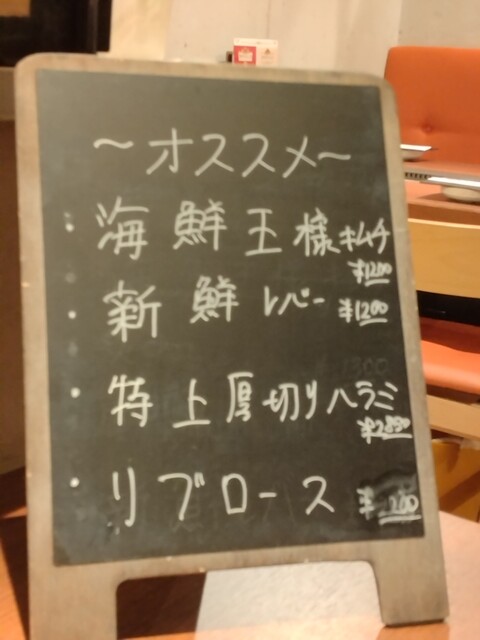 ～オススメ～
・海鮮王様キムチ
¥1200
・新鮮レバー ¥1200
・特上厚切りハラミ
¥2850
・リブロース